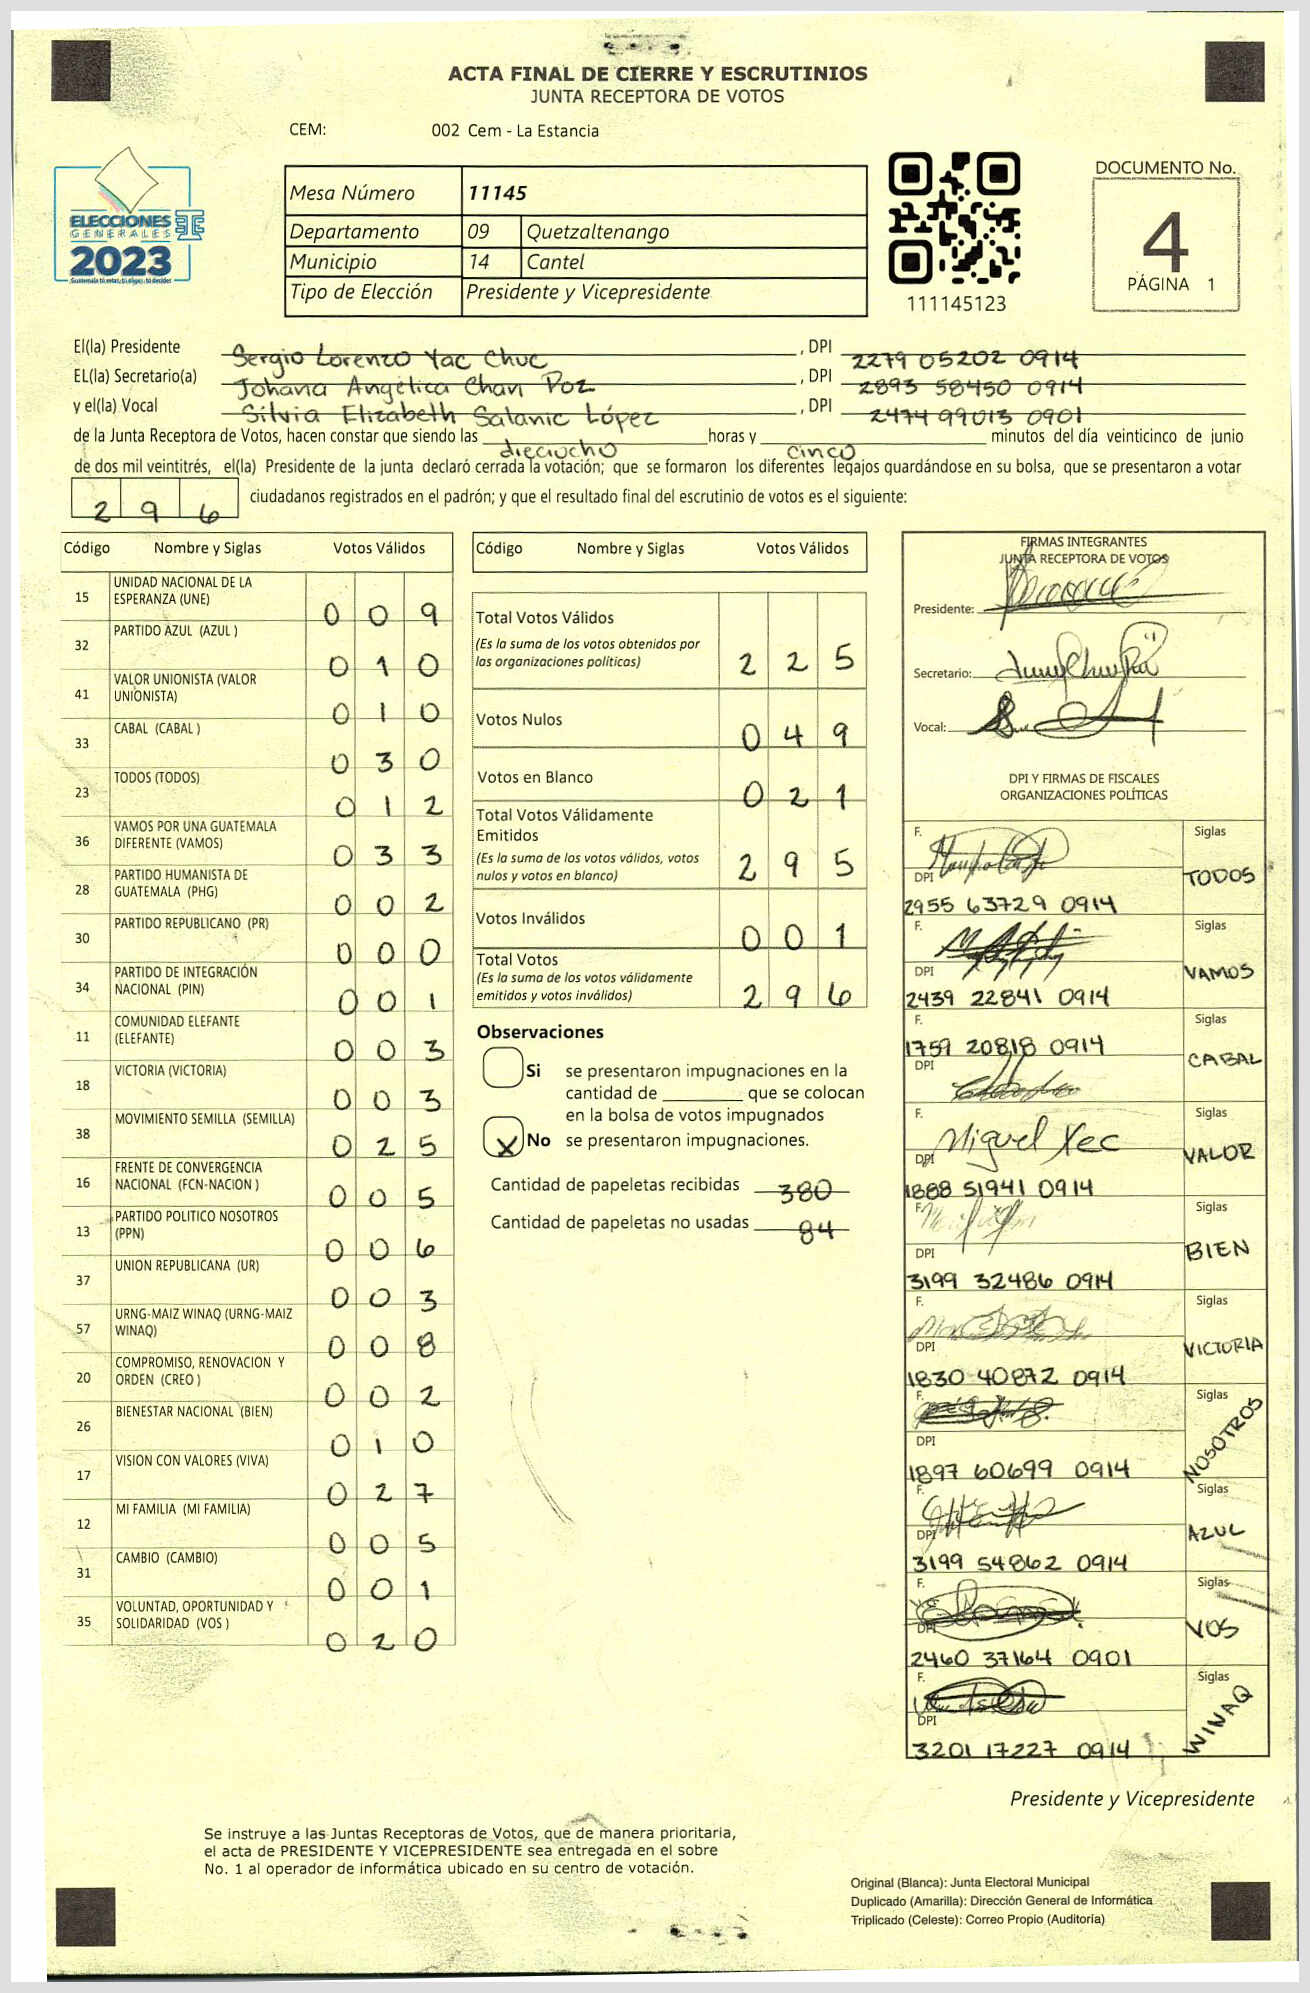 ACTA FINAL DE CIERRE Y ESCRUTINIOS
JUNTA RECEPTORA DE VOTOS
CEM: 002 Cem - La Estancia
ELECCIONES
GENERALES
2023
Guatemala tú estás, tú eliges, tú decides
Mesa Número 11145
Departamento 09 Quetzaltenango
Municipio 14 Cantel
Tipo de Elección Presidente y Vicepresidente
111145123
DOCUMENTO No.
4
PÁGINA 1
El(la) Presidente Sergio Lorenzo Yac Chuc, DPI 2279 05202 0914
EL(la) Secretario(a) Johana Angélica Chan Poz, DPI 2893 58450 0914
y el(la) Vocal Silvia Elizabeth Salanic López, DPI 2474 99013 0901
de la Junta Receptora de Votos, hacen constar que siendo las dieciocho horas y cinco minutos del día veinticinco de junio
de dos mil veintitrés, el(la) Presidente de la junta declaró cerrada la votación; que se formaron los diferentes legajos guardándose en su bolsa, que se presentaron a votar
296 ciudadanos registrados en el padrón; y que el resultado final del escrutinio de votos es el siguiente:
Código Nombre y Siglas Votos Válidos
15 UNIDAD NACIONAL DE LA ESPERANZA (UNE) 009
32 PARTIDO AZUL (AZUL ) 010
41 VALOR UNIONISTA (VALOR UNIONISTA) 010
33 CABAL (CABAL ) 030
23 TODOS (TODOS) 012
36 VAMOS POR UNA GUATEMALA DIFERENTE (VAMOS) 033
28 PARTIDO HUMANISTA DE GUATEMALA (PHG) 002
30 PARTIDO REPUBLICANO (PR) 000
34 PARTIDO DE INTEGRACIÓN NACIONAL (PIN) 001
11 COMUNIDAD ELEFANTE (ELEFANTE) 003
18 VICTORIA (VICTORIA) 003
38 MOVIMIENTO SEMILLA (SEMILLA) 025
16 FRENTE DE CONVERGENCIA NACIONAL (FCN-NACION ) 005
13 PARTIDO POLITICO NOSOTROS (PPN) 006
37 UNION REPUBLICANA (UR) 003
57 URNG-MAIZ WINAQ (URNG-MAIZ WINAQ) 008
20 COMPROMISO, RENOVACION Y ORDEN (CREO ) 002
26 BIENESTAR NACIONAL (BIEN) 010
17 VISION CON VALORES (VIVA) 027
12 MI FAMILIA (MI FAMILIA) 005
31 CAMBIO (CAMBIO) 001
35 VOLUNTAD, OPORTUNIDAD Y SOLIDARIDAD (VOS ) 020
Código Nombre y Siglas Votos Válidos
Total Votos Válidos
(Es la suma de los votos obtenidos por
las organizaciones políticas) 225
Votos Nulos 049
Votos en Blanco 021
Total Votos Válidamente
Emitidos
(Es la suma de los votos válidos, votos
nulos y votos en blanco) 295
Votos Inválidos 001
Total Votos
(Es la suma de los votos válidamente
emitidos y votos inválidos) 296
Observaciones
Si se presentaron impugnaciones en la
cantidad de ________ que se colocan
en la bolsa de votos impugnados
X No se presentaron impugnaciones.
Cantidad de papeletas recibidas 380
Cantidad de papeletas no usadas 84
FIRMAS INTEGRANTES
JUNTA RECEPTORA DE VOTOS
Presidente:
Secretario:
Vocal:
DPI Y FIRMAS DE FISCALES
ORGANIZACIONES POLÍTICAS
F. Siglas
DPI TODOS
2955 63729 0914
F. Siglas
DPI VAMOS
2439 22841 0914
F. Siglas
1759 20818 0914
DPI CABAL
F. Miguel Xec Siglas
DPI VALOR
1888 51941 0914
F. Siglas
DPI BIEN
3199 32486 0914
F. Siglas
DPI VICTORIA
1830 40872 0914
F. Siglas
DPI NOSOTROS
1897 60699 0914
F. Siglas
DPI AZUL
3199 54862 0914
F. Siglas
DPI VOS
2460 37164 0901
F. Siglas
DPI WINAQ
3201 17227 0914
Presidente y Vicepresidente
Se instruye a las Juntas Receptoras de Votos, que de manera prioritaria,
el acta de PRESIDENTE Y VICEPRESIDENTE sea entregada en el sobre
No. 1 al operador de informática ubicado en su centro de votación.
Original (Blanca): Junta Electoral Municipal
Duplicado (Amarilla): Dirección General de Informática
Triplicado (Celeste): Correo Propio (Auditoría)